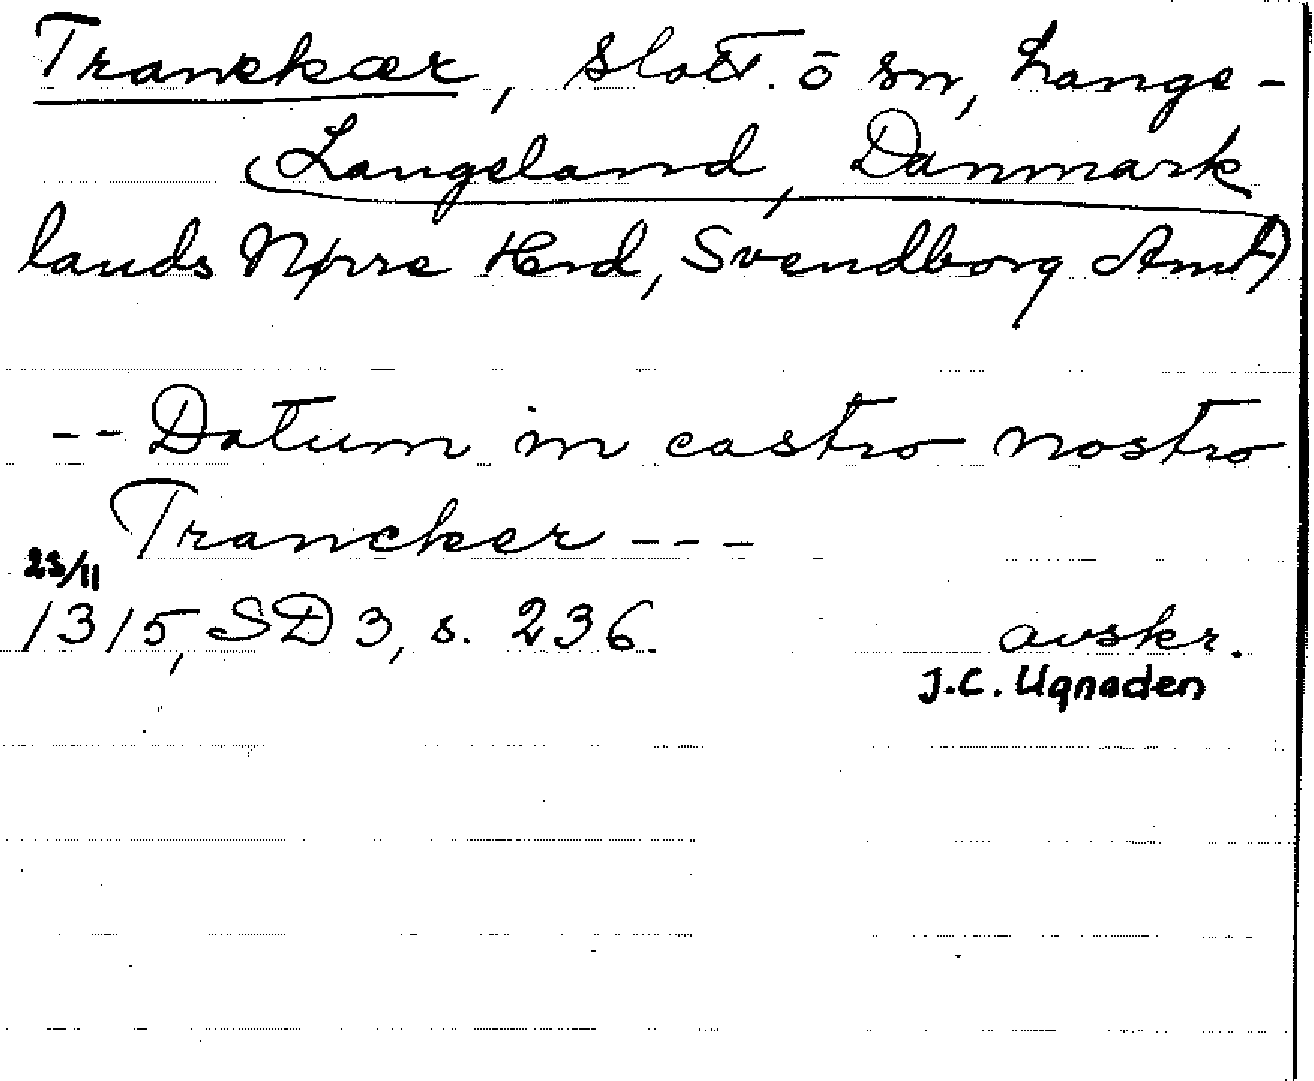 Tranekær, slott. ō sn, Lange-
Langeland, Danmark
lands Nørre Herd, Svendborg Amt)
-- Datum in castro nostro
Trancker ---
23/11
1315, SD 3, s. 236. avskr.
J.C. Ugnaden